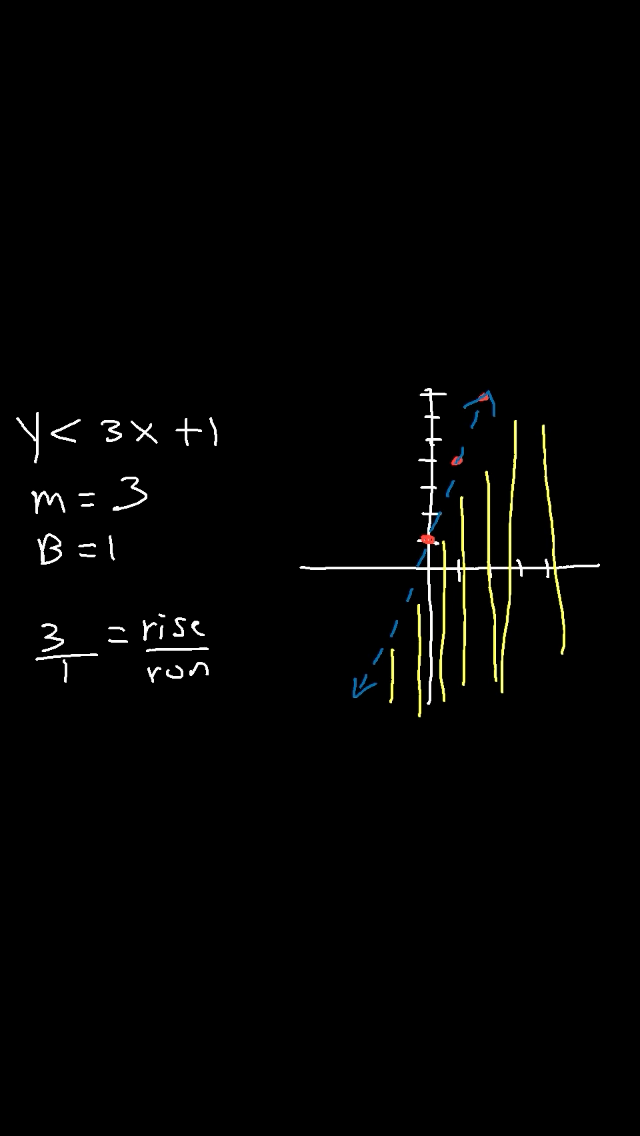 y < 3x + 1
m = 3
B = 1
3/1 = rise/run